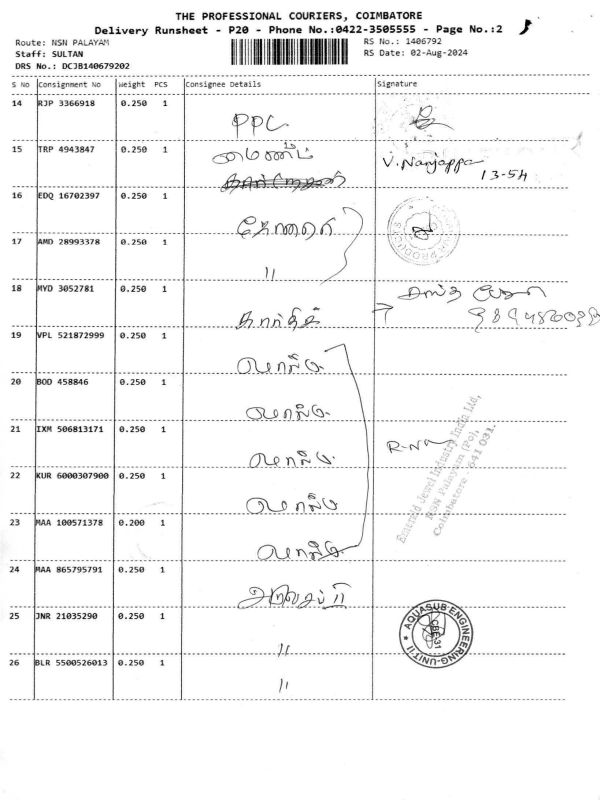 THE PROFESSIONAL COURIERS, COIMBATORE
Delivery Runsheet - P20 - Phone No.:0422-3505555 - Page No.:2
Route: NSN PALAYAM
RS No.: 1406792
Staff: SULTAN
RS Date: 02-Aug-2024
DRS No.: DCJB140679202
S No Consignment No Weight PCS Consignee Details Signature
14 RJP 3366918 0.250 1 PPC
15 TRP 4943847 0.250 1 V. Nanjappa
13-54
16 EDQ 16702397 0.250 1
17 AMD 28993378 0.250 1 "
18 MYD 3052781 0.250 1 கார்திக்
19 VPL 521872999 0.250 1
20 BOD 458846 0.250 1
21 IXM 506813171 0.250 1
22 KUR 6000307900 0.250 1
23 MAA 100571378 0.200 1
Emerald Jewel Industry India Ltd,
NSN Palayam (Po),
Coimbatore - 641 031.
24 MAA 865795791 0.250 1
25 JNR 21035290 0.250 1 "
AQUASUB ENGINEERING-UNIT II
CBE-31
26 BLR 5500526013 0.250 1 "